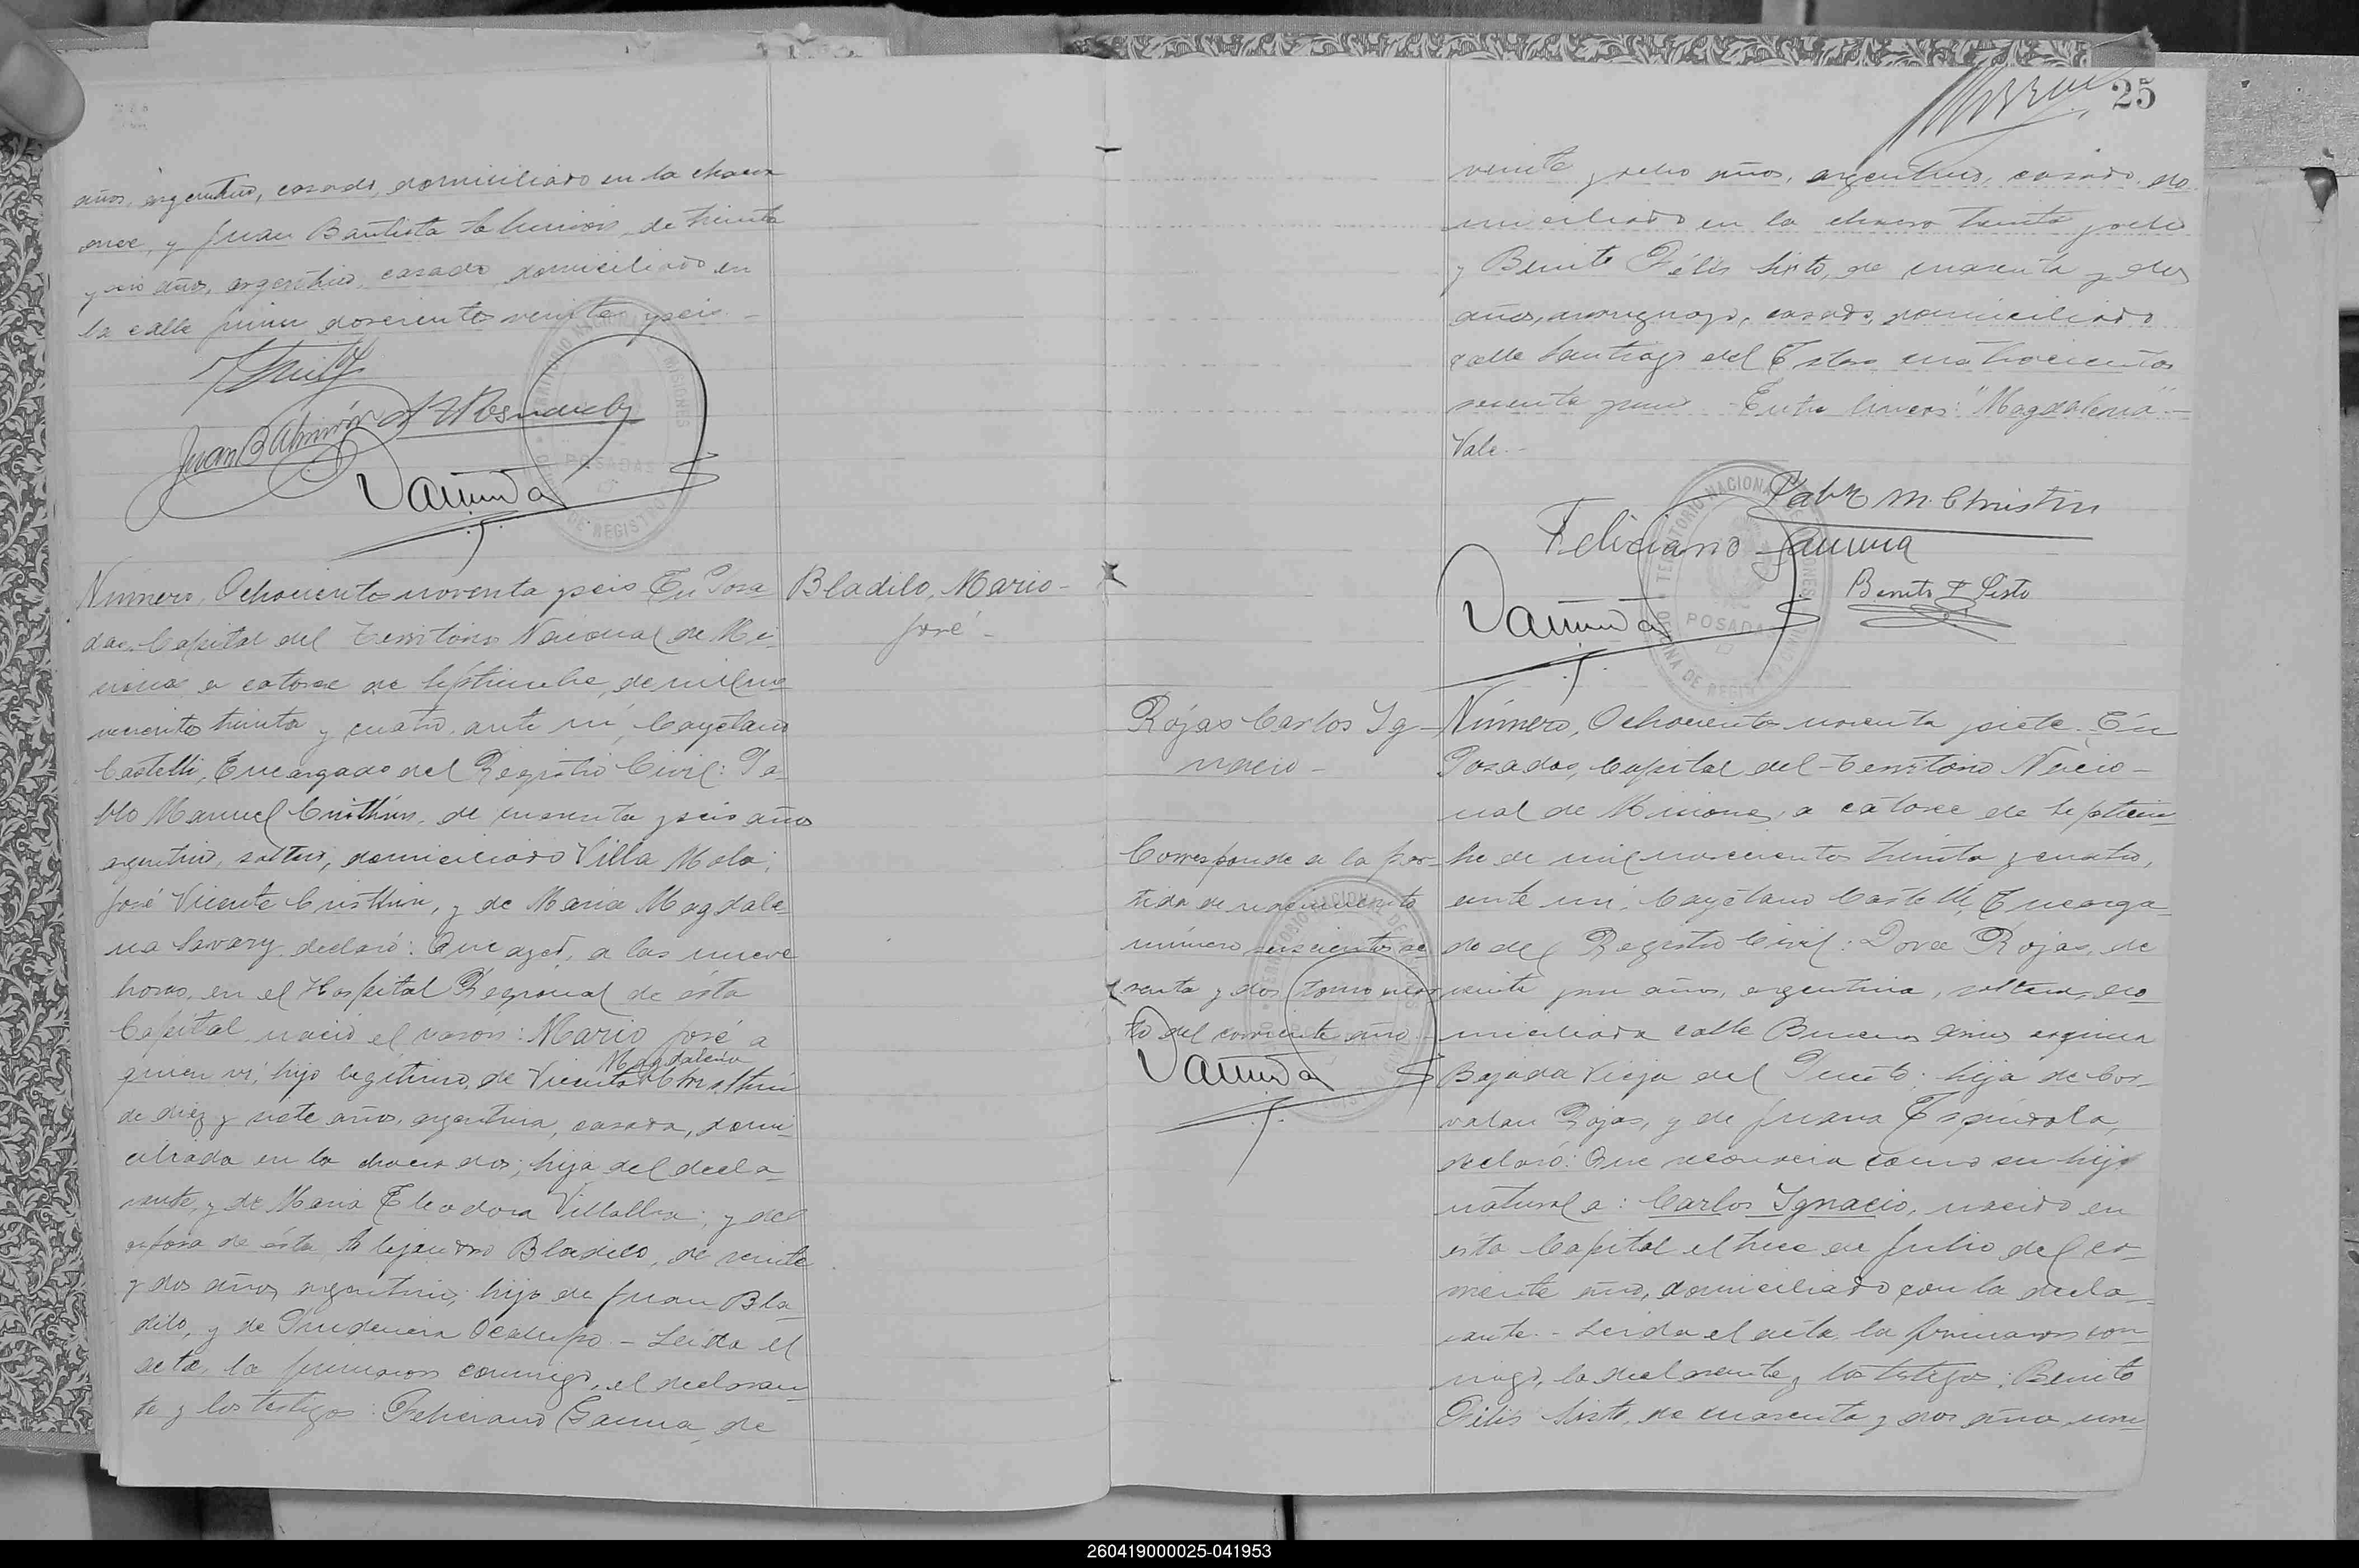 años, argentino, casado, domiciliado en la chacra
once, y Juan Bautista Almirón, de treinta
y seis años, argentino, casado domiciliado en
la calle Junin doscientos veinte y seis.-
Juan B Almirón
TERRITORIO NACIONAL DE MISIONES
POSADAS
OFICINA DE REGISTRO CIVIL
Número, Ochociento noventa y seis En Posa
das, Capital del Territorio Nacional de Mi-
siones a catorce de Septiembre, de mil no
vecientos treinta y cuatro, ante mí, Cayetano
Castelli, Encargado del Registro Civil: Pa-
blo Manuel Cristhin, de cuarenta y seis años
argentino, soltero, domiciliado Villa Mola;
José Vicente Cristhin, y de Maria Magdale
na Savary declaró: Que ayer, a las nueve
horas, en el Hospital Regional de ésta
Capital nació el varon: Mario José a
quien vi, hijo legítimo de Vicenta Magdalena Christhin
de diez y siete años, argentina, casada, domi-
ciliada en la chacra dos; hija del decla-
rante, y de Maria Eleodora Villalba; y del
esposo de ésta Alejandro Bladilo, de veinte
y dos años, argentino; hijo de Juan Bla-
dilo, y de Prudencia Ocampo.- Leída el
acta, la firmaron conmigo, el declaran-
te y los testigos: Feliciano Gauna, de
Bladilo, Mario-
José-
25
veinte y ocho años, argentino, casado, do
miciliado en la chacra treinta y ocho
y Benito Félix Sisto, de cuarenta y dos
años, uruguayo, casado, domiciliado
calle Santiago del Estero cuatrocientos
sesenta y uno Entre lineas: "Magdalena"-
Vale.-
Pablo M. Christin
Feliciano Gauna
Benito F Sisto
TERRITORIO NACIONAL DE MISIONES
POSADAS
OFICINA DE REGISTRO CIVIL
Rojas Carlos Ig-
nacio-
Corresponde a la par-
tida de nacimiento
número seiscientos se
senta y dos tomo
to del corriente año.
Número, Ochociento noventa y siete. En
Posadas, Capital del Territorio Nacio-
nal de Misiones, a catorce de Septiem
bre de mil novecientos treinta y cuatro,
ante mí, Cayetano Castelli, Encarga
do del Registro Civil: Rojas, de
veinte y un años, argentina, soltera, do
miciliada calle Buenos Aires esquina
Bajada Vieja del Puerto; hija de Cor-
valan Rojas, y de Juana Espindola,
declaró: Que reconocia como su hijo
natural a: Carlos Ignacio, nacido en
esta Capital el trece de Julio del co-
rriente año, domiciliado con la decla-
rante.- Leida el acta, la firmaron con
migo, la declarante y los testigos: Benito
Félix Sisto, de cuarenta y dos años, uru
260419000025-041953